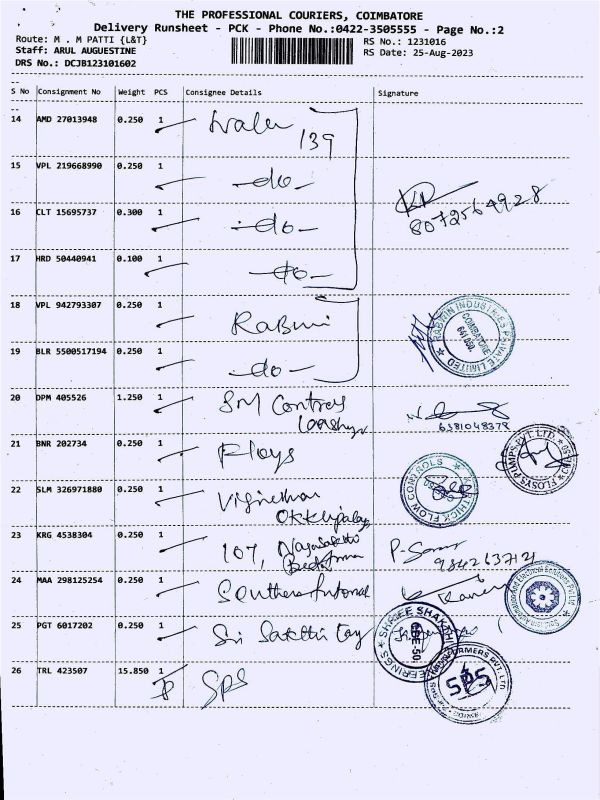 THE PROFESSIONAL COURIERS, COIMBATORE
Delivery Runsheet - PCK - Phone No.:0422-3505555 - Page No.:2
Route: M . M PATTI {L&T}
RS No.: 1231016
Staff: ARUL AUGUESTINE
RS Date: 25-Aug-2023
DRS No.: DCJB123101602
S No Consignment No Weight PCS Consignee Details Signature
14 AMD 27013948 0.250 1
139
15 VPL 219668990 0.250 1 -do-
8072564928
16 CLT 15695737 0.300 1 -do-
17 HRD 50440941 0.100 1 -do-
18 VPL 942793307 0.250 1
RABWIN INDUSTRIES PRIVATE LIMITED
COIMBATORE
641 050.
19 BLR 5500517194 0.250 1 -do-
20 DPM 405526 1.250 1 SM Controls
6381048378
21 BNR 202734 0.250 1 Floys
FLOSYS PUMPS PVT. LTD.
22 SLM 326971880 0.250 1
FLOW CONTROLS
23 KRG 4538304 0.250 1 107,
9842637121
24 MAA 298125254 0.250 1 Southern
25 PGT 6017202 0.250 1 Sri Sakthi
SHREE SHAKTHI
CBE-50
26 TRL 423507 15.850 1 SPS
SPS